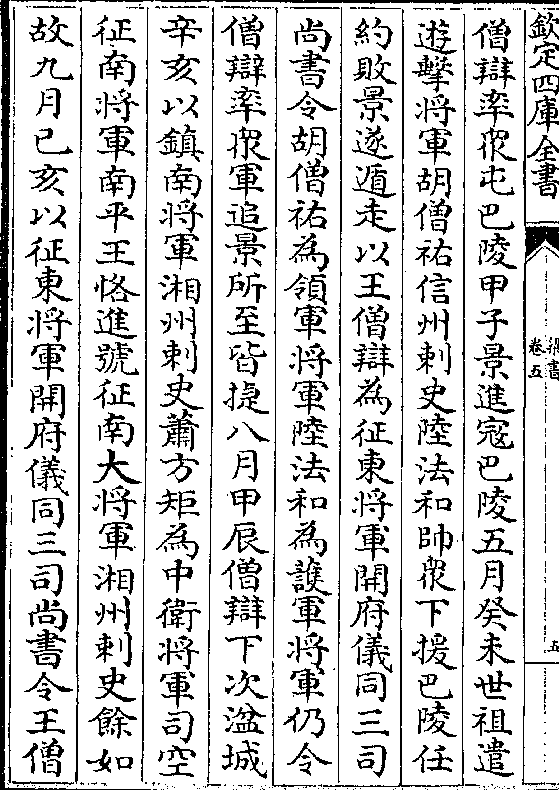 欽定四庫全書
梁書
卷五
五
僧辯率衆屯巴陵甲子景進宼巴陵五月癸未世祖遣
遊擊將軍胡僧祐信州刺史陸法和帥衆下援巴陵任
約敗景遂遁走以王僧辯為征東將軍開府儀同三司
尚書令胡僧祐為領軍將軍陸法和為護軍將軍仍令
僧辯率衆軍追景所至皆捷八月甲辰僧辯下次湓城
辛亥以鎮南將軍湘州刺史蕭方矩為中衛將軍司空
征南將軍南平王恪進號征南大將軍湘州刺史餘如
故九月己亥以征東將軍開府儀同三司尚書令王僧